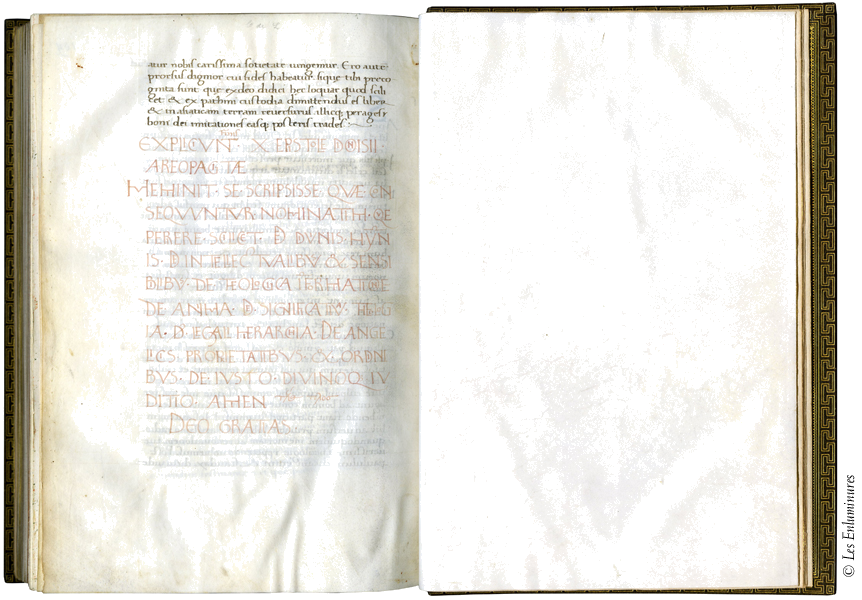 atur nobis carissima societate iungemur. Ero aute
prorsus dignior cui fides habeatur. sique tibi preco
gnita sunt que ex deo didici hec loquar quod scili
cet & ex pathmi custodia dimittendus es liber
& in asiaticam terram reversurus. illicq; perages
boni dei imitationes easq; posteris trades.
EXPLICIUNT · X EPISTOLE DIONISII
AREOPAGITAE
MEMINIT · SE · SCRIPSISSE · QVAE
SEQVVNTVR · NOMINATIM
PERERE · SCILICET · D DIVINIS HYMN
IS · D INTELLECTVALIBV & SENSI
BILIBV · DE THEOLOGICA
DE ANIMA · D SIGNIFICATIV THEOLOG
IA · D LEGALI HIERARCHIA · DE ANGE
LICIS PROPRIETATIBVS · & ORDINI
BVS · DE IVSTO · DIVINOQ IV
DITIO · AMEN
DEO GRATIAS
© Les Enluminures